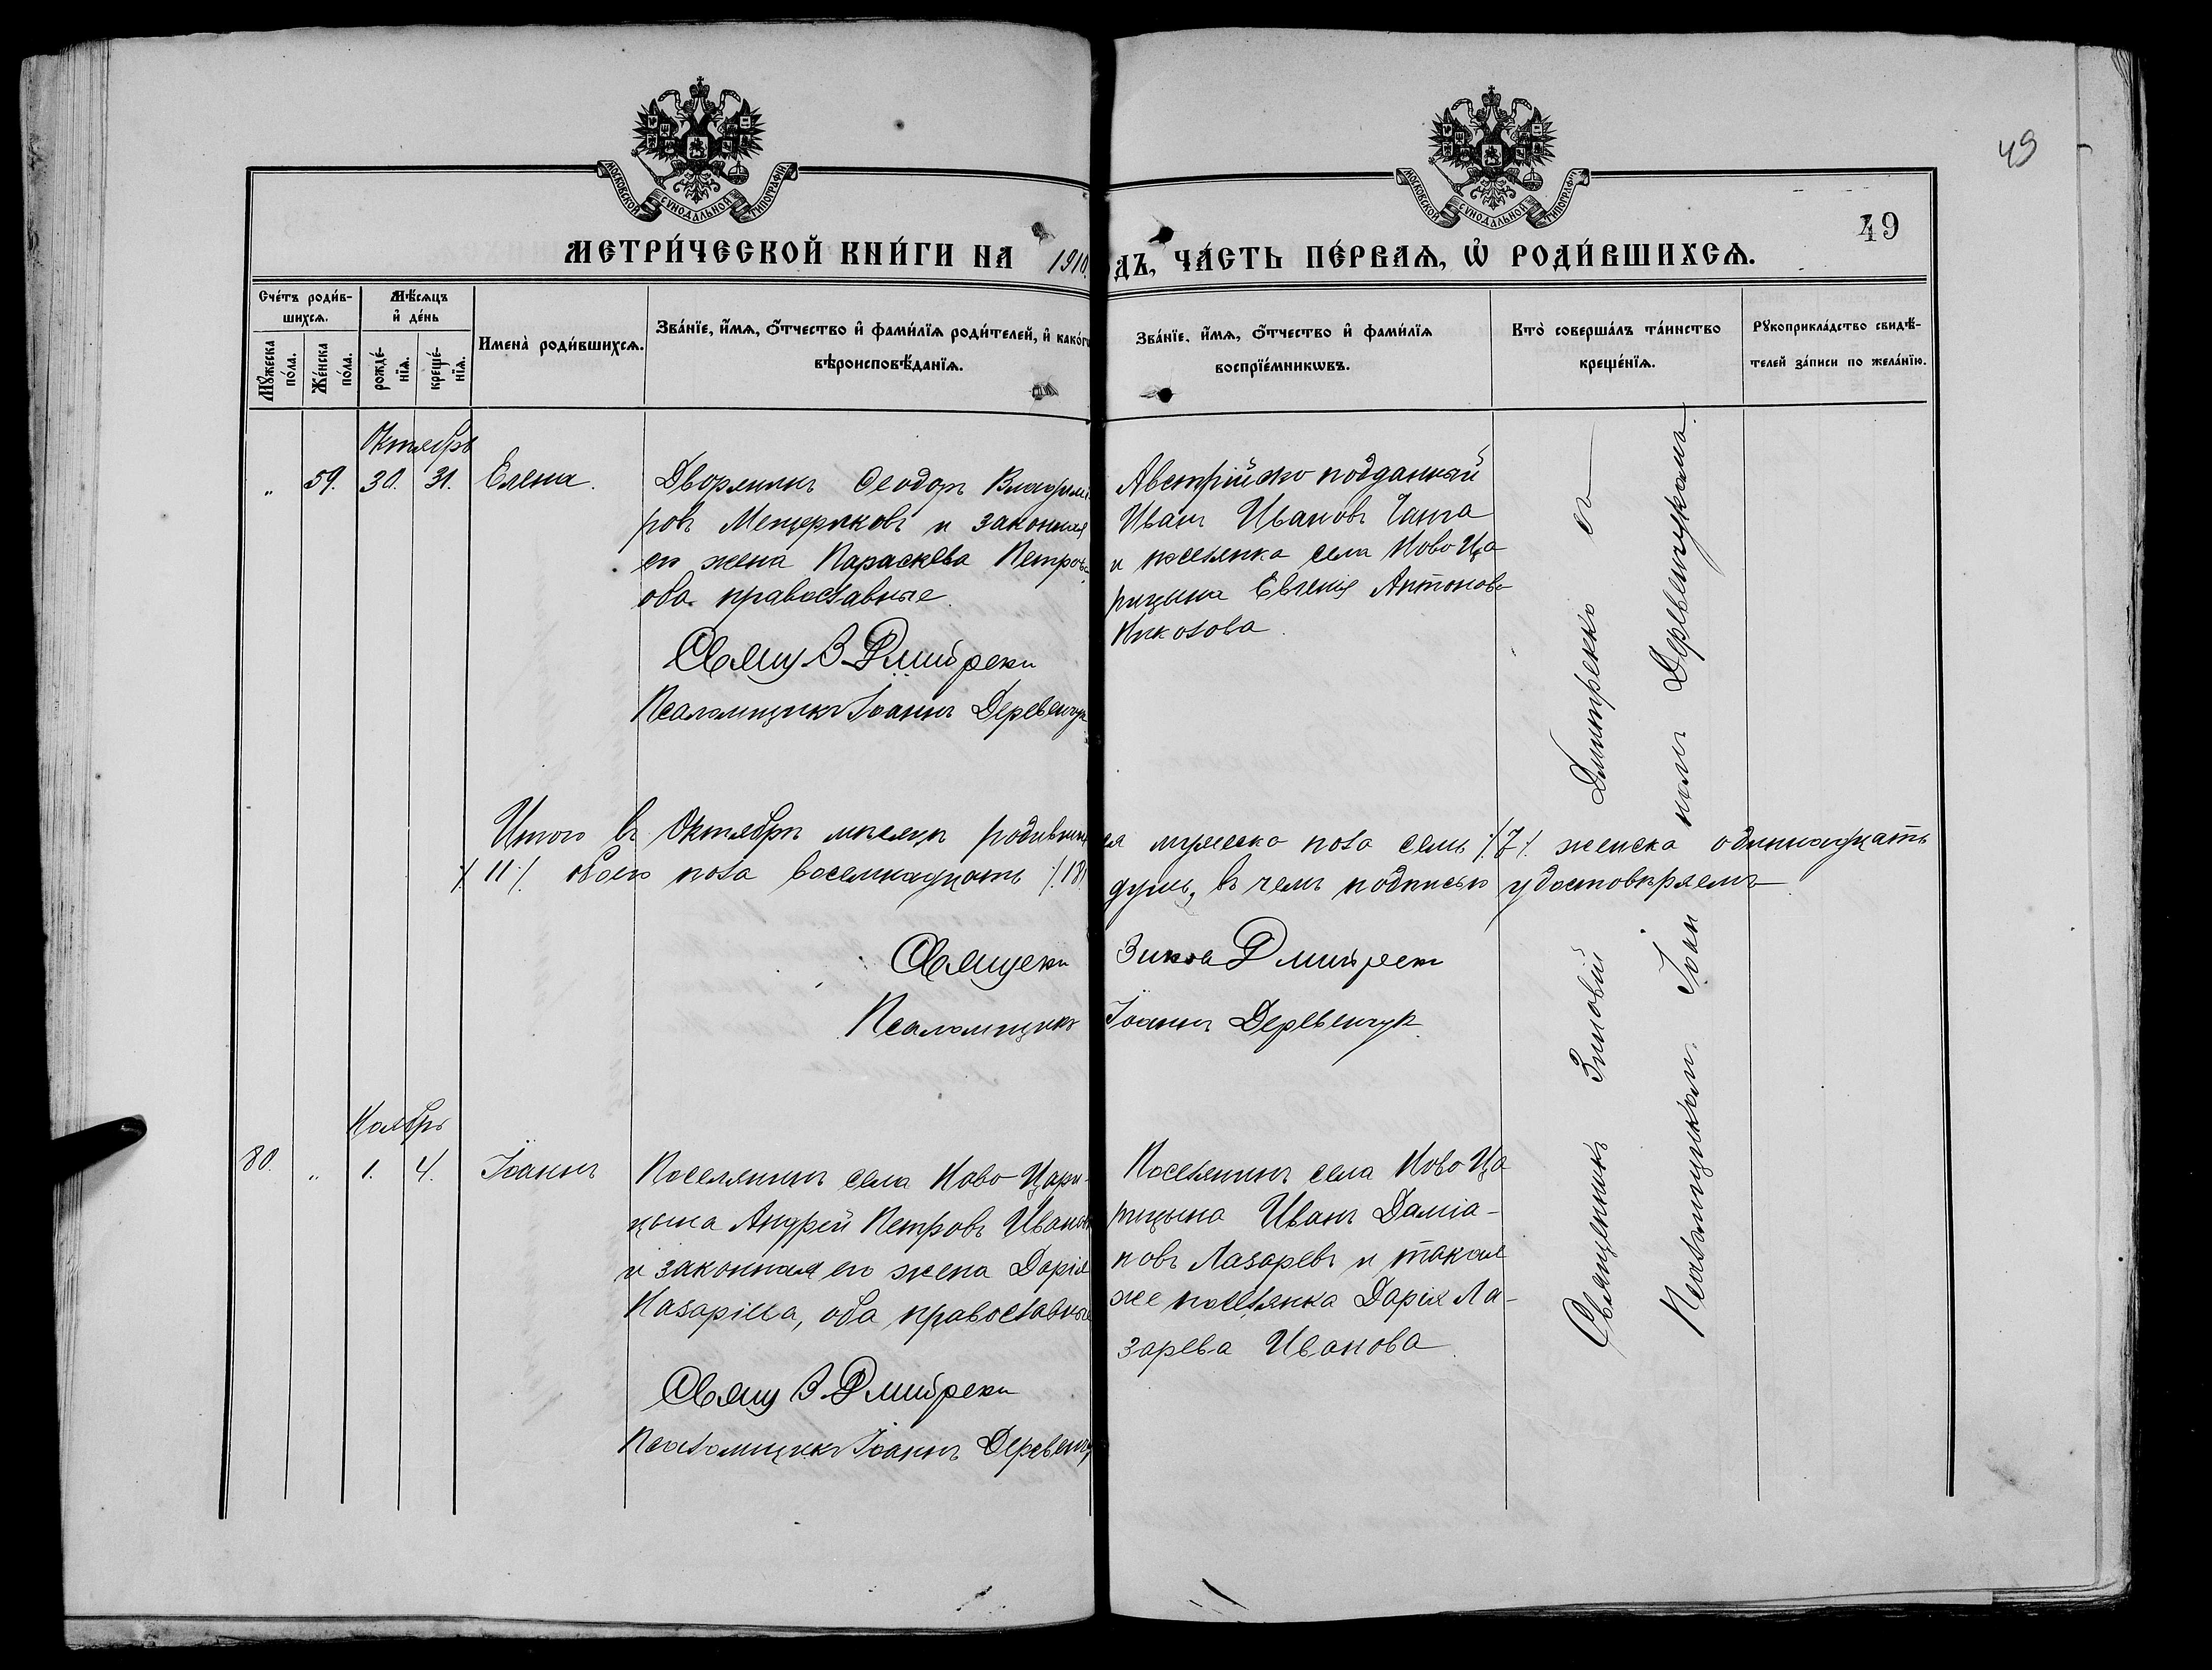 49
49
МОСКОВСКОЙ СУНОДАЛЬНОЙ ТИПОГРАФІИ
МОСКОВСКОЙ СУНОДАЛЬНОЙ ТИПОГРАФІИ
МЕТРИ́ЧЕСКОЙ КНИ́ГИ НА 1910
ДЪ, ЧА́СТЬ ПЕ́РВАѦ, Ѡ҆ РОДИ́ВШИХСѦ.
Сче́тъ роди́в-
шихсѧ.
Мѣ́сѧцъ
и҆ де́нь
Мꙋ́жеска
по́ла.
Же́нска
по́ла.
рожде́-
нїѧ.
креще́-
нїѧ.
Имена̀ роди́вшихсѧ.
Зва́нїе, и҆́мѧ, ѻ҆́тчество и҆ фами́лїѧ роди́телей, и҆ како́гw
вѣроисповѣ́данїѧ.
Зва́нїе, и҆́мѧ, ѻ҆́тчество и҆ фами́лїѧ
воспрїе́мникѡвъ.
Кто̀ соверша́лъ та́инство
креще́нїѧ.
Рꙋкоприкла́дство свидѣ́-
телей за́писи по жела́нїю.
Октябрь
" 59. 30. 31. Елена.
Дворянинъ Ѳеодоръ Владимі
ровъ Мещеряковъ и законная
его жена Параскева Петрова
оба православные.
Свящ З Дмитреки
Псаломщикъ Іоаннъ Деревенчук
Австрійско подданный
Иванъ Ивановъ
и поселянка села Ново Ца
рицына Евгенія Антонова
Николова.
Итого въ Октябрѣ мѣсяцѣ родивших
ся мужеска пола семь ./7/. женска одиннадцать
./11/. обоего пола восемнадцать ./18
душъ, въ чемъ подписью удостовѣряемъ
Священ
Псаломщикъ Іоаннъ Деревенчук.
Ноябрь
80. " 1. 4. Іоаннъ
Поселянинъ села Ново-Цари-
цына Андрей Петровъ Ивановъ
и законная его жена Дарія
Назаріева, оба православные
Свящ З Дмитреки
Псаломщикъ Іоаннъ Деревенч
Поселянинъ села Ново Ца
рицына Иванъ Даміа-
новъ Лазаревъ и такая
же поселянка Дарія Ла-
зарева Иванова.
Священникъ Зиновій Дмитреко съ
Псаломщикомъ Іоанномъ Деревенчукомъ.